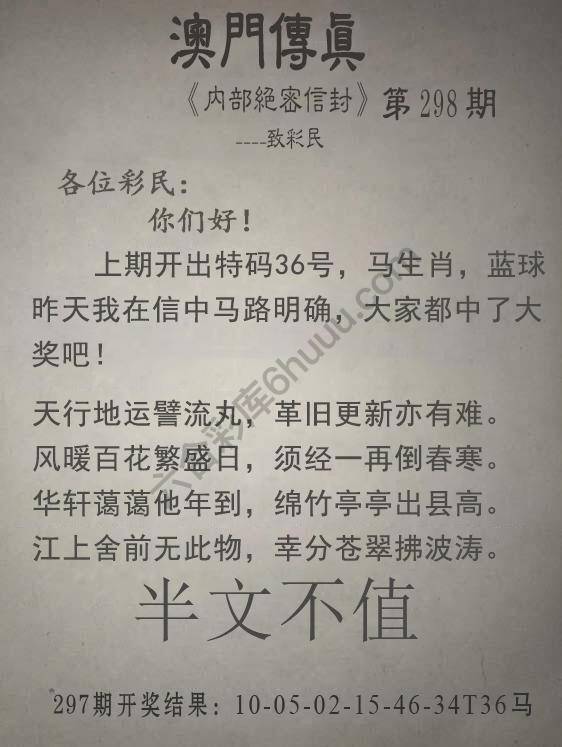 澳門傳真
《内部絕密信封》第298期
----致彩民
各位彩民：
你们好！
上期开出特码36号，马生肖，蓝球
昨天我在信中马路明确，大家都中了大
奖吧！
天行地运譬流丸，革旧更新亦有难。
风暖百花繁盛日，须经一再倒春寒。
华轩蔼蔼他年到，绵竹亭亭出县高。
江上舍前无此物，幸分苍翠拂波涛。
半文不值
297期开奖结果：10-05-02-15-46-34T36马
六合彩库6huuu.com